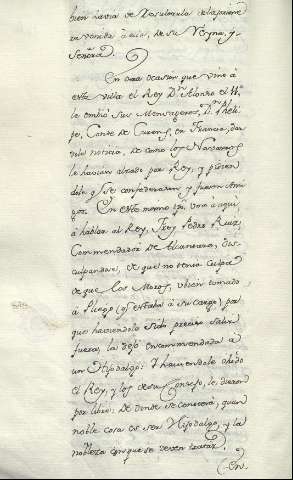 bien havia de resultarla de la primera
venida à ella, de su Reyna, y
Señora.
En otra ocasion que vino à
esta villa el Rey Dn. Alonso el
le embió sus Mensageros, Dn. Pheli-
po, Conde de en Francia, dan-
dole noticia, de como los Navarros
le havian alzado por Rey, y pidien-
dole q se confederasen y fuesen Ami-
gos. En este mismo vino aqui,
à hablar al Rey, Frey Pedro Ruiz,
Commendador de Alcantara, dis-
culpandose, de que no tenia culpa
de que los Moros, ubiesen tomado
à Pliego (q estaba à su cargo) por
que haviendole sido preciso salir
fuera, la dejo encommendada a
un Hijodalgo: Y haviendole ohido
el Rey, y los de su Consejo, le dieron
por libre: De donde se conocerà, quan
noble cosa es ser Hijodalgo, y la
nobleza con que se deven tratar.
En